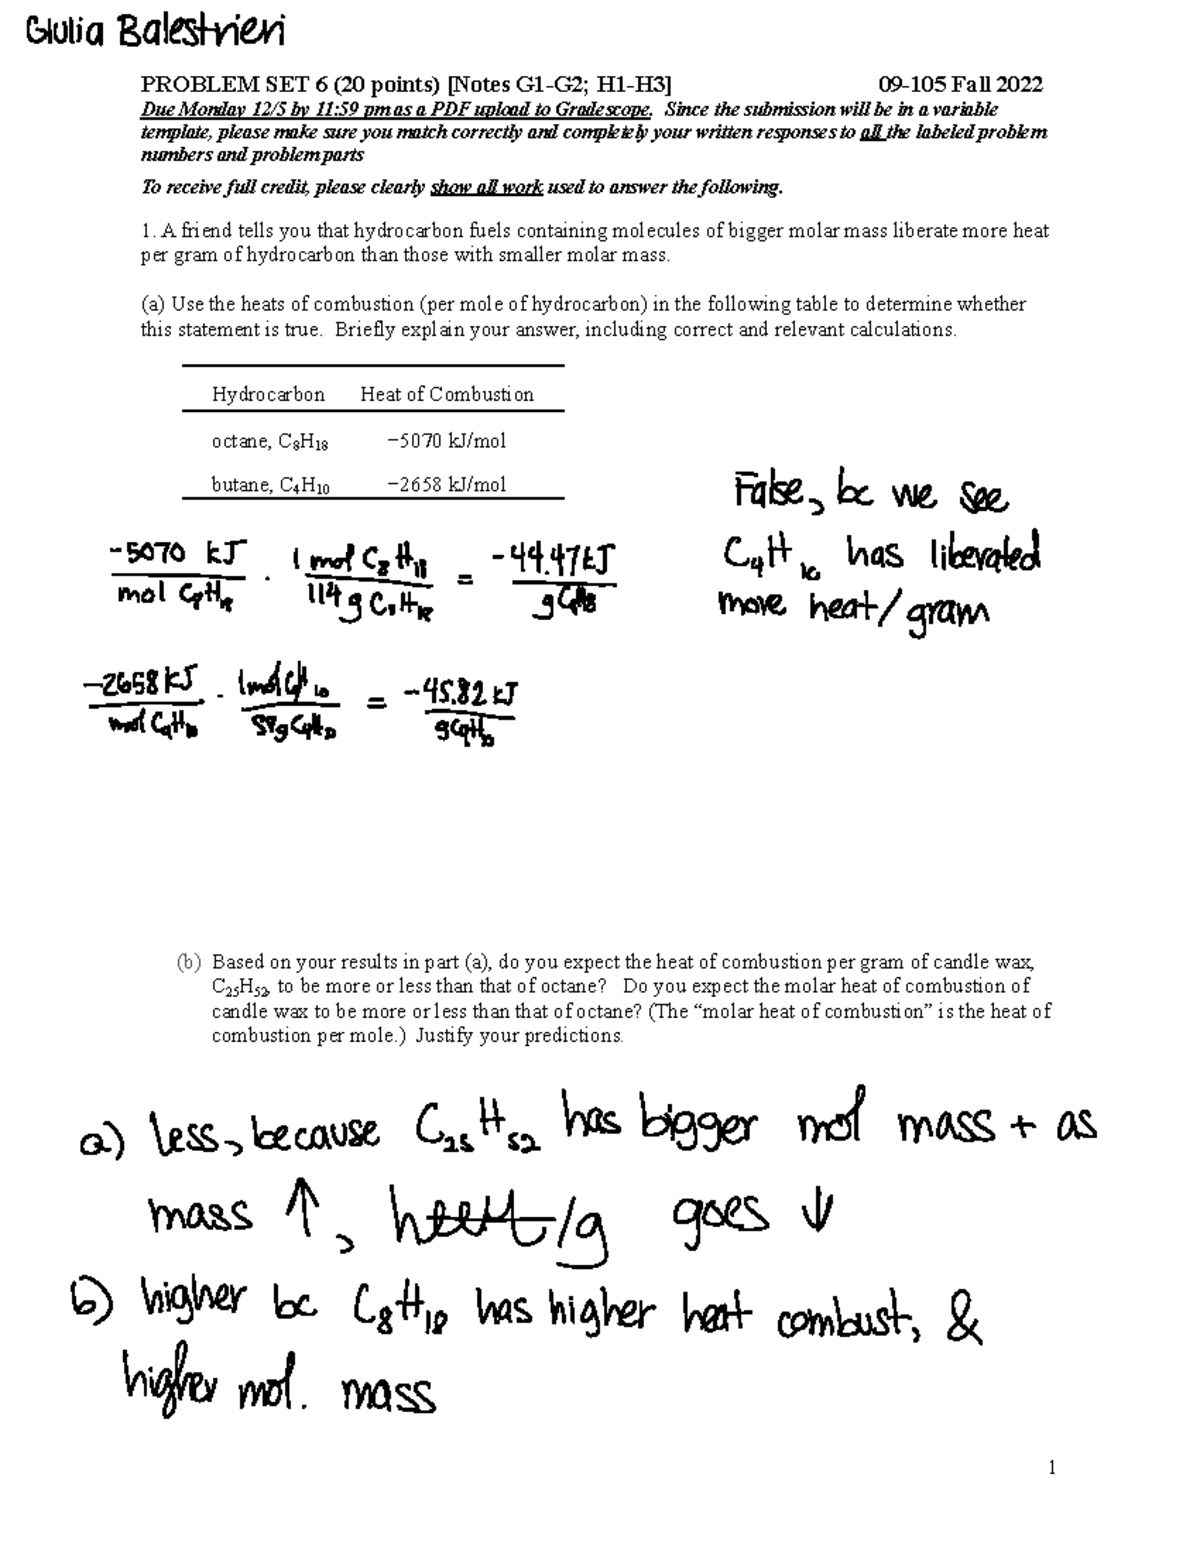 Giulia Balestrieri
PROBLEM SET 6 (20 points) [Notes G1-G2; H1-H3] 09-105 Fall 2022
Due Monday 12/5 by 11:59 pm as a PDF upload to Gradescope. Since the submission will be in a variable
template, please make sure you match correctly and completely your written responses to all the labeled problem
numbers and problem parts
To receive full credit, please clearly show all work used to answer the following.
1. A friend tells you that hydrocarbon fuels containing molecules of bigger molar mass liberate more heat
per gram of hydrocarbon than those with smaller molar mass.
(a) Use the heats of combustion (per mole of hydrocarbon) in the following table to determine whether
this statement is true. Briefly explain your answer, including correct and relevant calculations.
Hydrocarbon Heat of Combustion
octane, C₈H₁₈ −5070 kJ/mol
butane, C₄H₁₀ −2658 kJ/mol
False, bc we see
C₄H₁₀ has liberated
more heat/gram
-5070 kJ / mol C₈H₁₈ · 1 mol C₈H₁₈ / 114 g C₈H₁₈ = -44.47 kJ / g
-2658 kJ / mol C₄H₁₀ · 1 mol C₄H₁₀ / 58 g C₄H₁₀ = -45.82 kJ / g C₄H₁₀
(b) Based on your results in part (a), do you expect the heat of combustion per gram of candle wax,
C₂₅H₅₂, to be more or less than that of octane? Do you expect the molar heat of combustion of
candle wax to be more or less than that of octane? (The “molar heat of combustion” is the heat of
combustion per mole.) Justify your predictions.
a) less, because C₂₅H₅₂ has bigger mol mass + as
mass ↑, heat/g goes ↓
b) higher bc C₈H₁₈ has higher heat combust, &
higher mol. mass
1